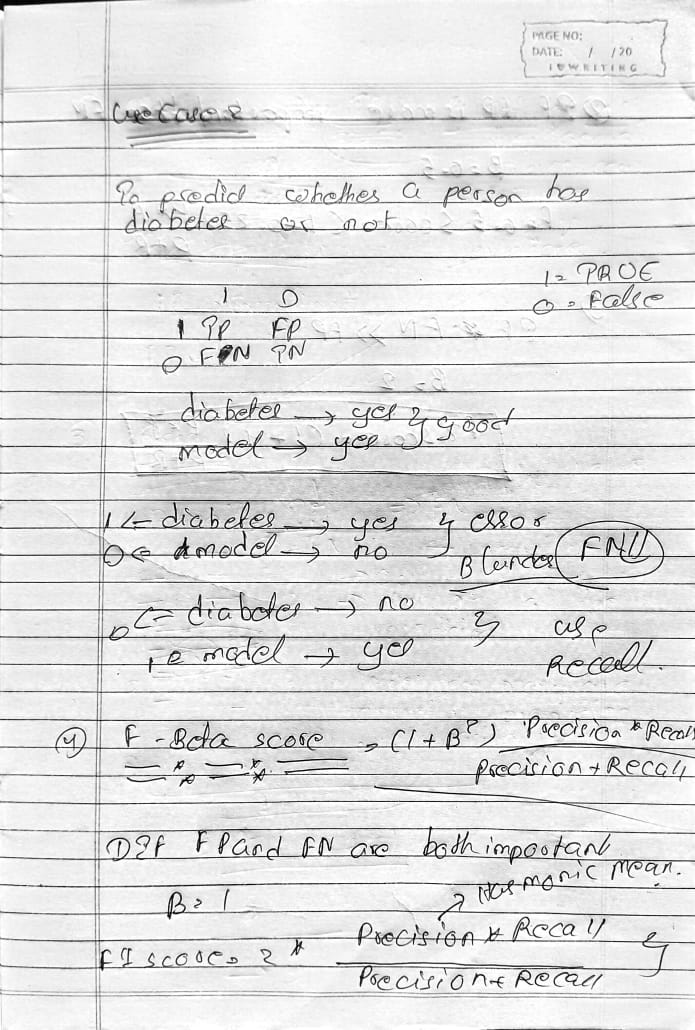 PAGE NO:
DATE: / /20
Use Case 2
To predict whether a person has
diabetes or not
1 = TRUE
0 = False
1 0
1 TP FP
0 FN TN
diabetes → yes } good
model → yes
1 ← diabetes → yes } error
0 ← model → no Blunder FN!!
0 ← diabetes → no } use
1 ← model → yes Recall.
(4) F-Beta score = (1+B²) Precision * Recall
Precision + Recall
① If FP and FN are both important
B = 1 → Harmonic mean.
F1 score = 2 * Precision * Recall }
Precision + Recall